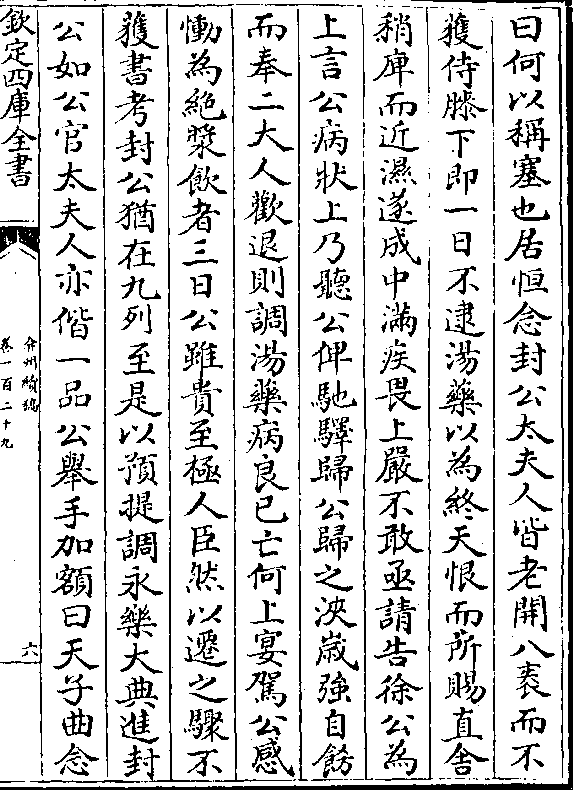 曰何以稱塞也居恒念封公太夫人皆老開八袠而不
獲侍膝下即一日不逮湯藥以為終天恨而所賜直舍
稍庳而近濕遂成中滿疾畏上嚴不敢亟請告徐公為
上言公病狀上乃聽公俾馳驛歸公歸之浹歳強自飭
而奉二大人歡退則調湯藥病良已亡何上宴駕公感
慟為絶漿飲者三日公雖貴至極人臣然以遷之驟不
獲書考封公猶在九列至是以預提調永樂大典進封
公如公官太夫人亦偕一品公舉手加額曰天子曲念
欽定四庫全書
弇州續稿
卷一百二十九
六